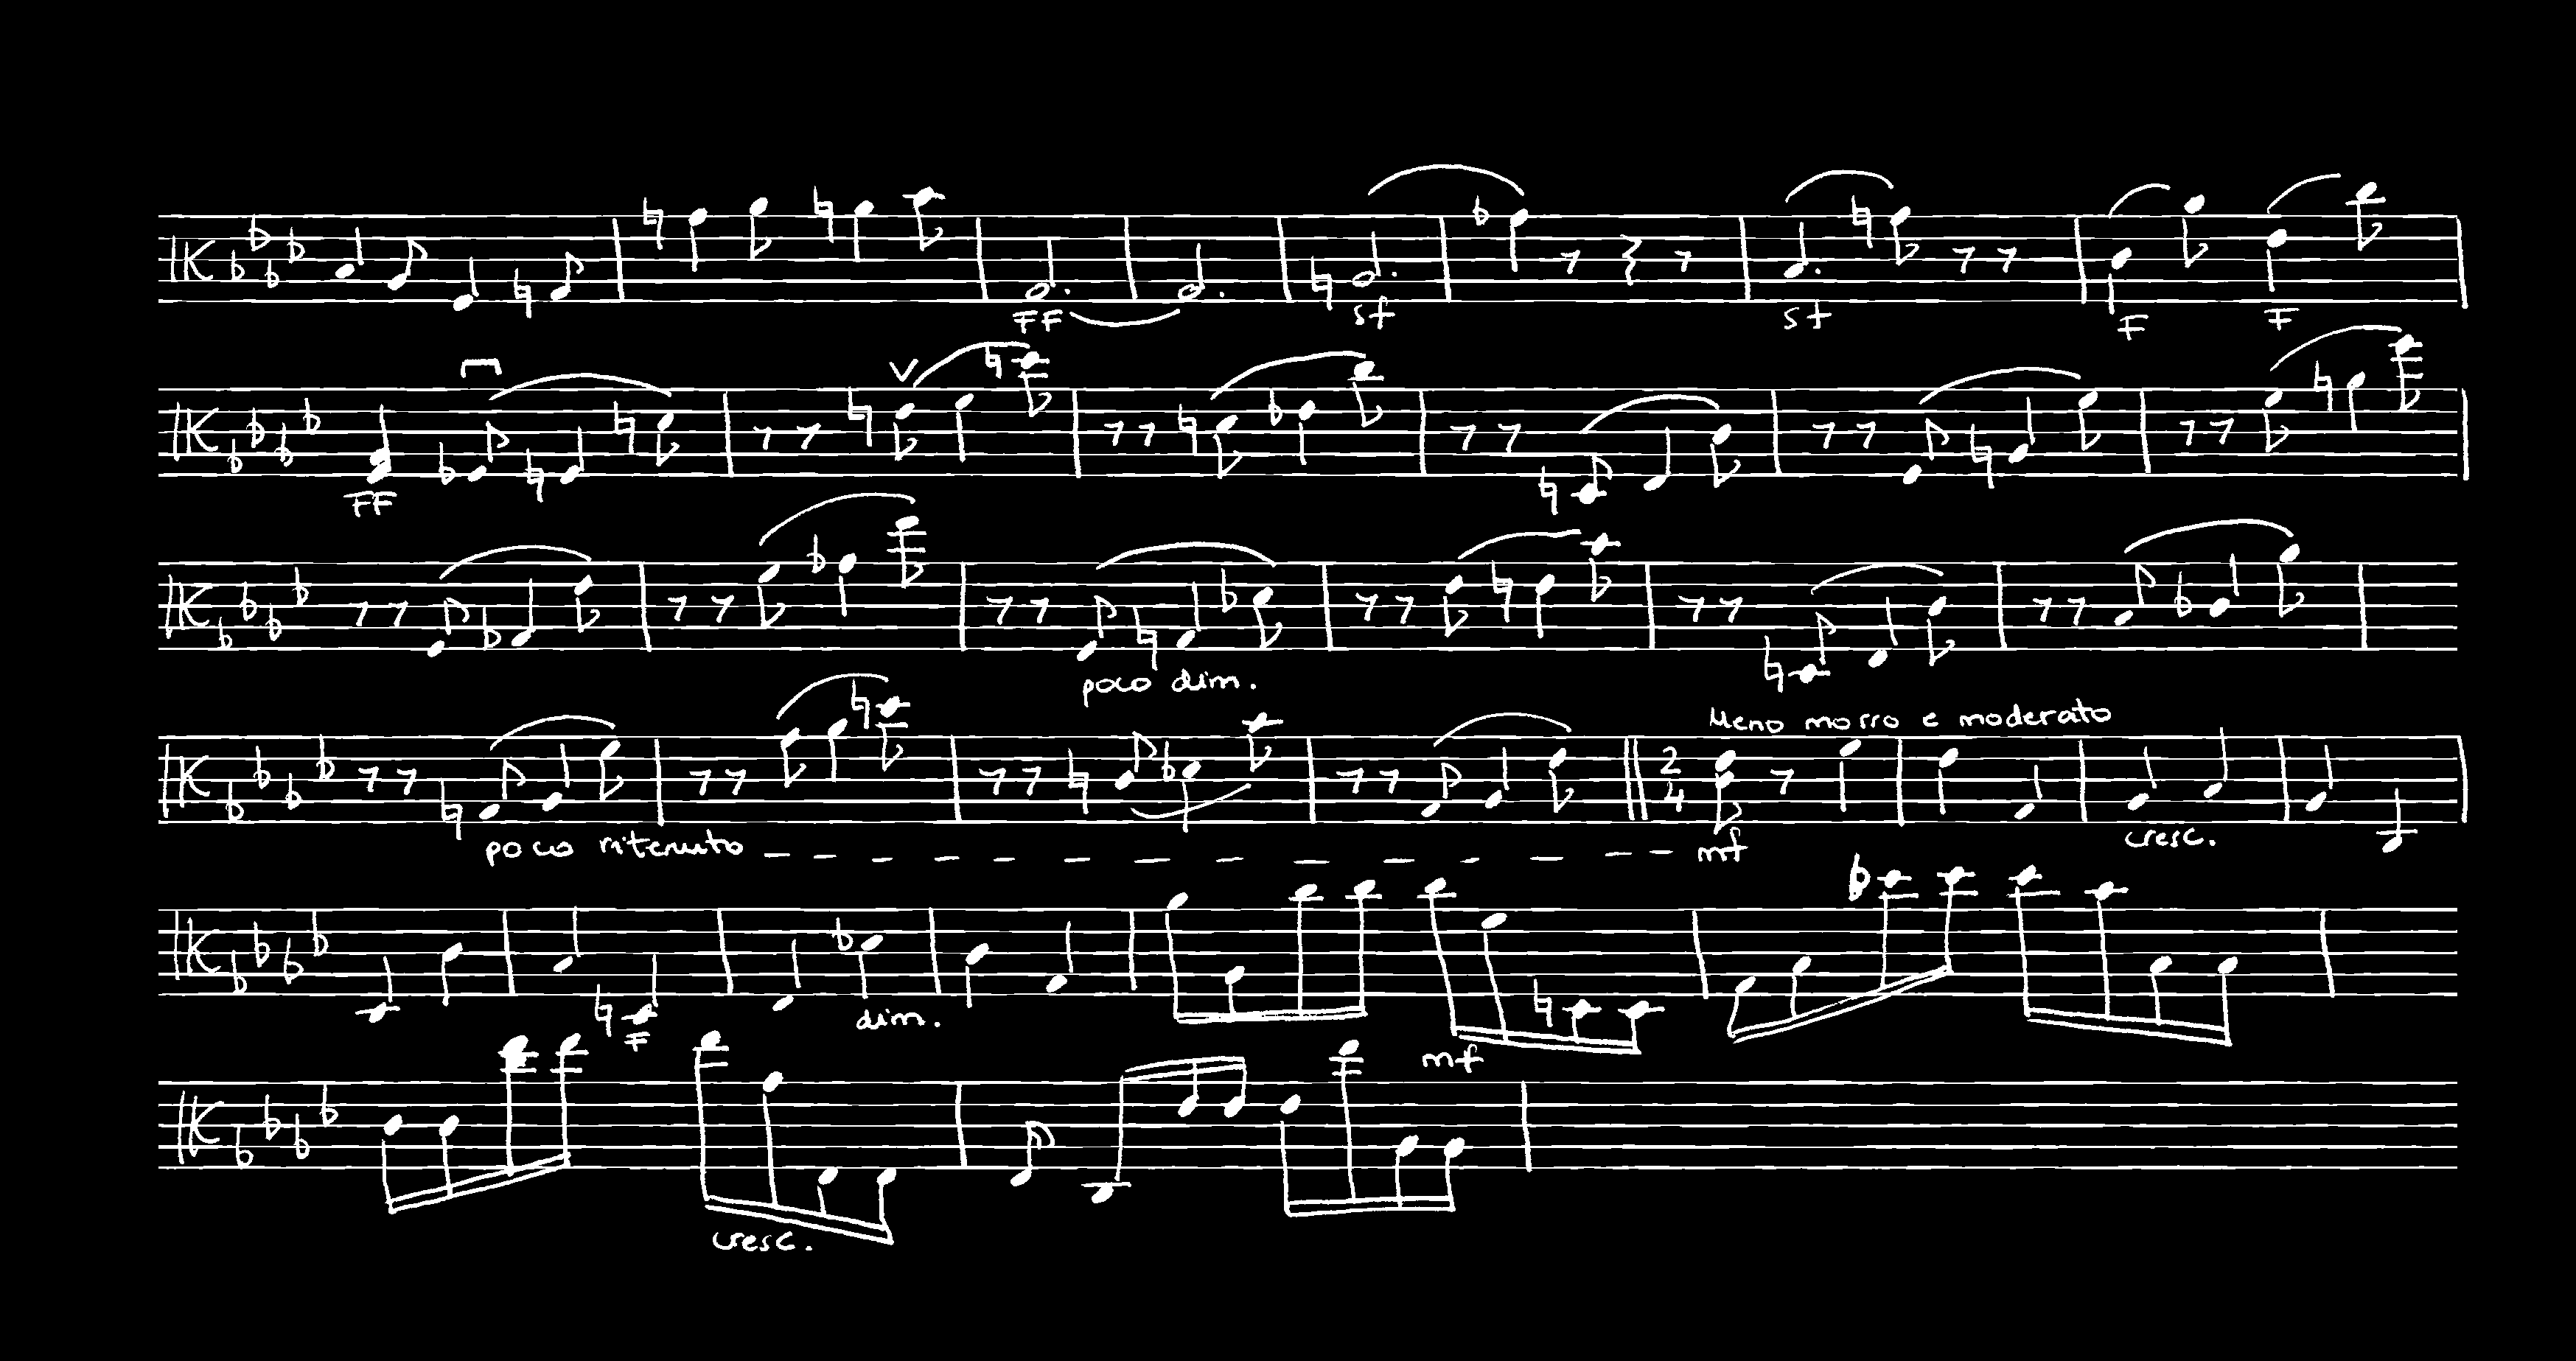 FF sf sf F F
FF
poco dim.
Meno mosso e moderato
2
4
poco ritenuto _ _ _ _ _ _ _ _ _ _ _ _ _ mf cresc.
F dim. mf
cresc.